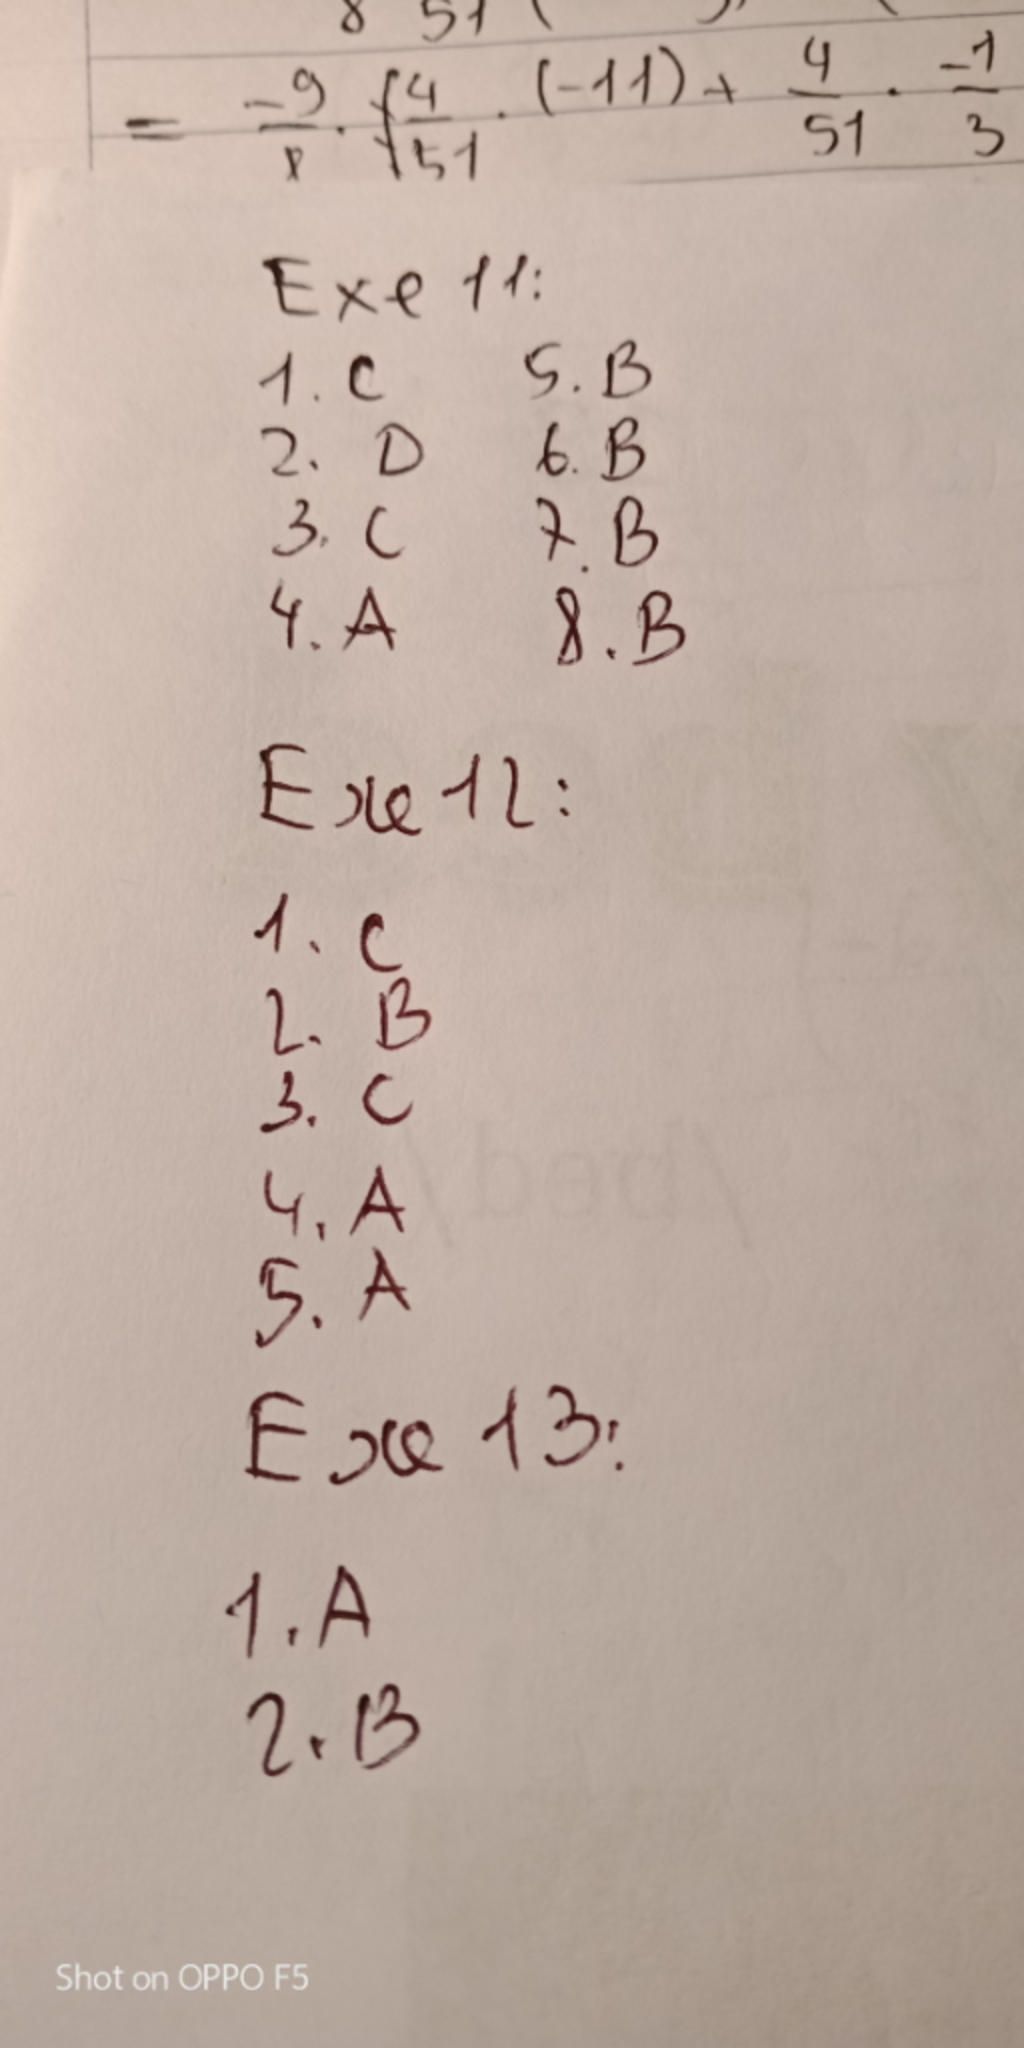 8 51 (
= -9/8 · (4/51 · (-11) + 4/51 · -1/3
Exe 11:
1. C 5. B
2. D 6. B
3. C 7. B
4. A 8. B
Exe 12:
1. C
2. B
3. C
4. A
5. A
Exe 13:
1. A
2. B
/bed/
Shot on OPPO F5